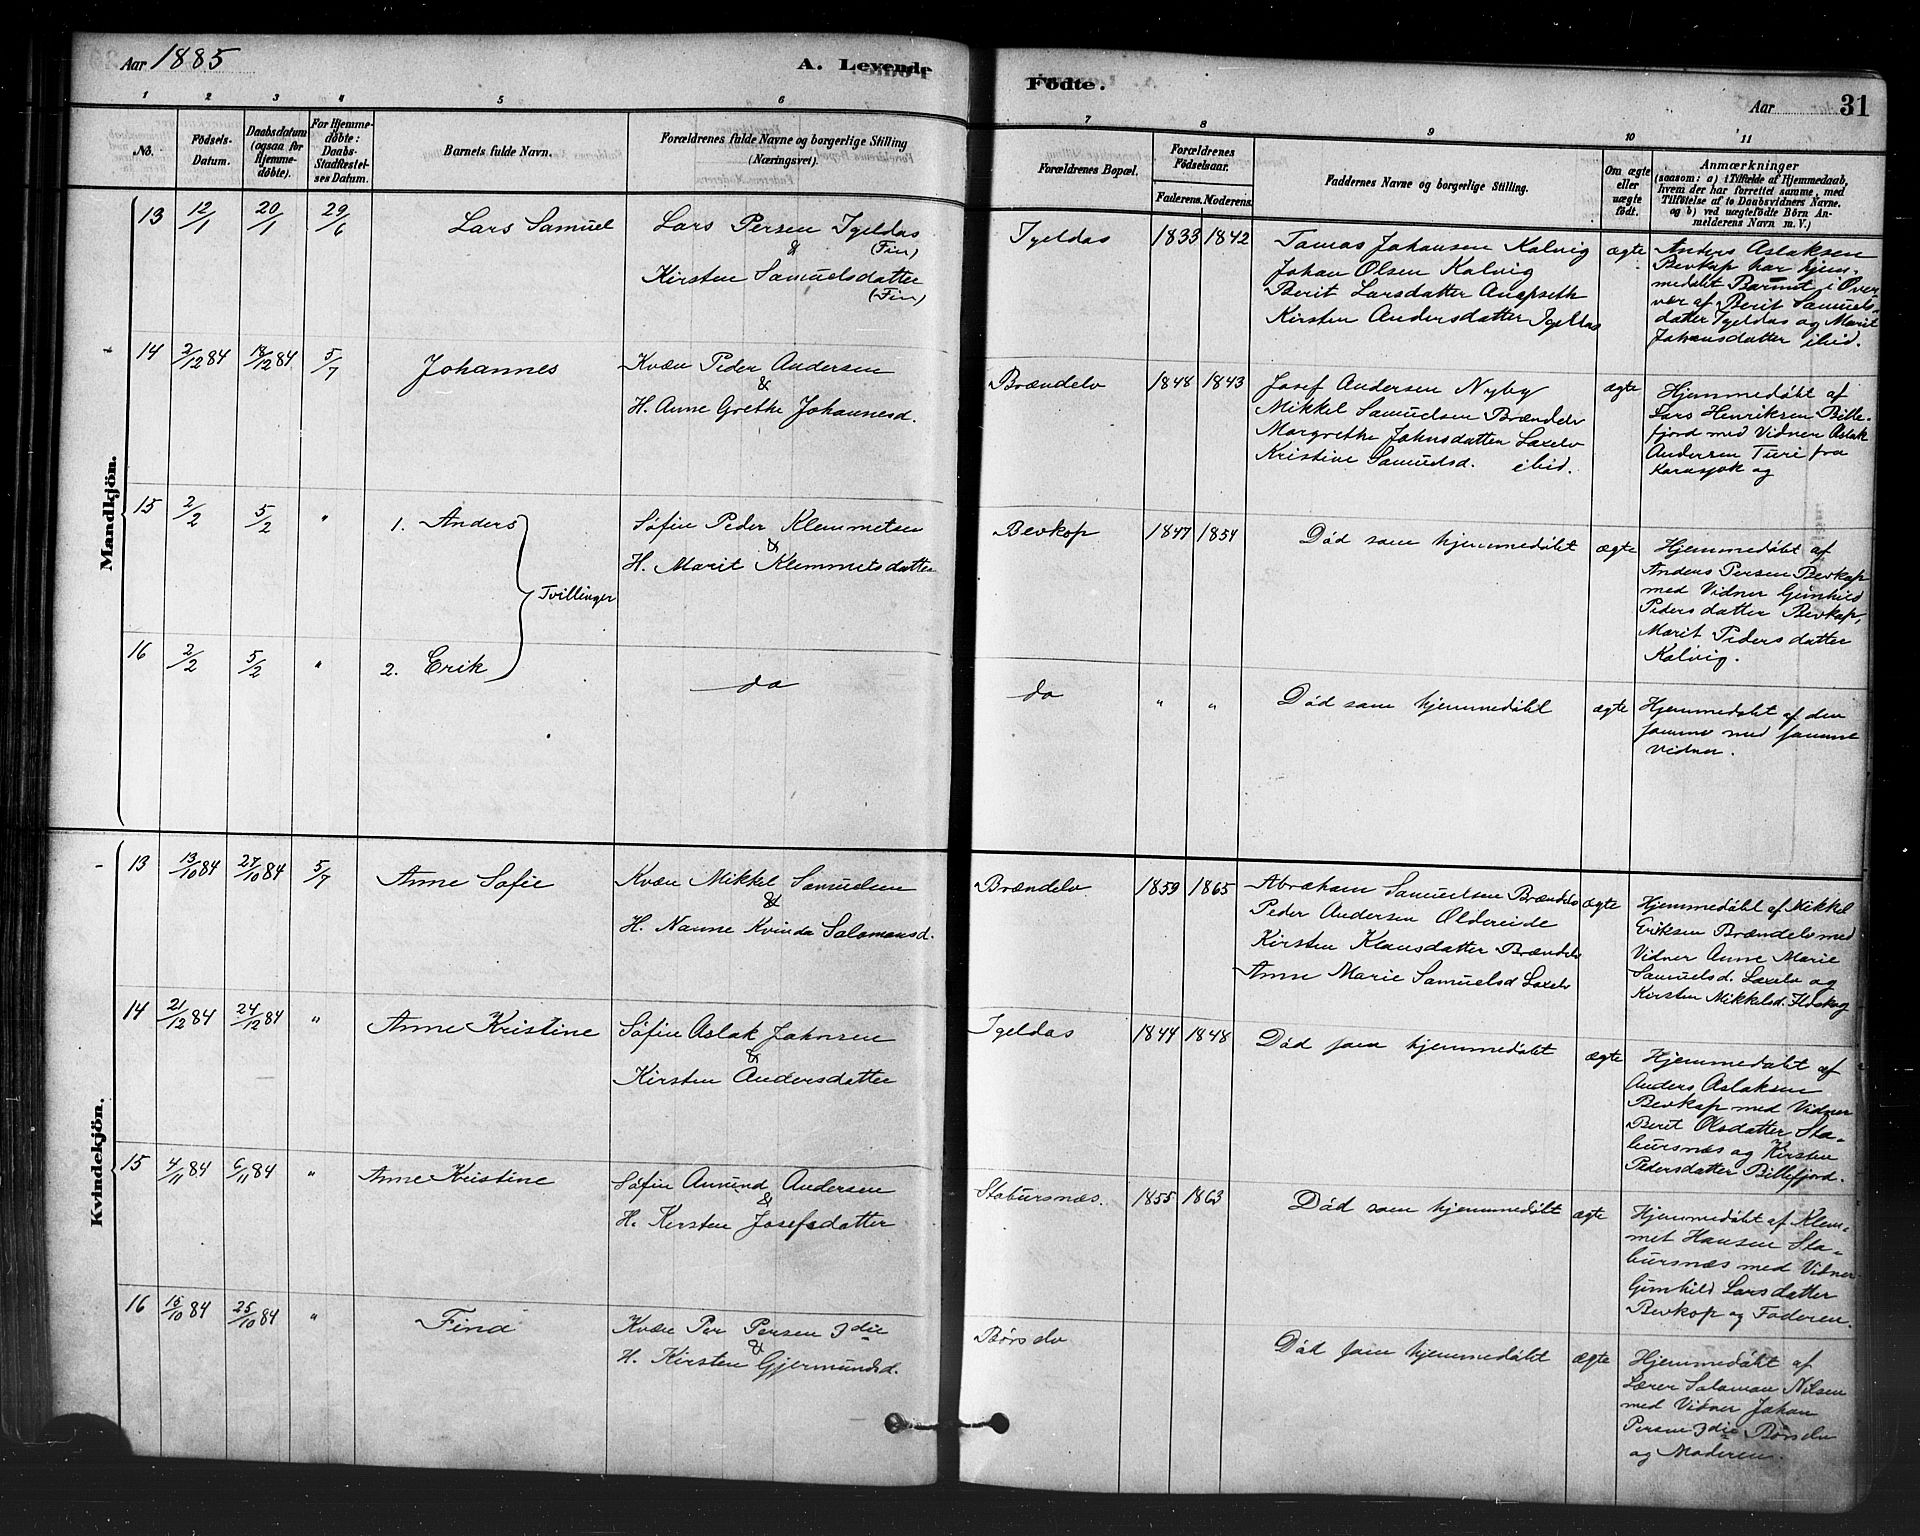 Aar 1885
A. Levende
Fødte.
Aar
31
1 2 3 4 5 6 7 8 9 10 11
No.
Fødsels-
Datum.
Daabsdatum
(ogsaa for
Hjemme-
døbte).
For Hjemme-
døbte:
Daabs-
Stadfæstel-
ses Datum.
Barnets fulde Navn.
Forældrenes fulde Navne og borgerlige Stilling
(Næringsvei).
Forældrenes Bopæl.
Forældrenes
Fødselsaar.
Faderens. Moderens.
Faddernes Navne og borgerlige Stilling.
Om ægte
eller
uægte
født.
Anmærkninger
(saasom: a) i Tilfælde af Hjemmedaab,
hvem der har forrettet samme, med
Tilføielse af to Daabsvidners Navne.
og b) ved uægtefødte Børn An-
melderens Navn m. V.)
Mandkjön.
13 12/1 20/1 29/6 Lars Samuel
Lars Persen Igeldas
(Fin)
&
Kirsten Samuelsdatter
(Fin)
Igeldas 1833 1842
Tomas Johansen Kalvig
Johan Olsen Kalvig
Berit Larsdatter
Kirsten Andersdatter Igeldas
ægte
Anders Aslaksen
Bevkop har hjem-
medøbt Barnet i Over-
vær af Berit Samuels-
datter Igeldas og Marit
Johansdatter ibid.
14 2/12 84 18/12 84 5/7 Johannes
Kvæn Peder Andersen
&
H. Anne Grethe Johannesd.
Brændelv 1848 1843
Josef Andersen Nyby
Mikkel Samuelsen Brændelv
Margrethe Johnsdatter Laxelv
Kristine Samuelsd. ibid.
ægte
Hjemmedøbt af
Lars Henriksen Bille-
fjord med Vidner Aslak
Andersen Turi fra
Karasjok og
15 2/2 5/2 " 1. Anders
Tvillinger
Søfin Peder Klemmetsen
&
H. Marit Klemmetsdatter
Bevkop 1847 1854
Død som hjemmedøbt ægte
Hjemmedøbt af
Anders Persen Bevkop
med Vidner Gunhild
Pedersdatter Bevkop,
Marit Pedersdatter
Kalvig.
16 2/2 5/2 " 2. Erik
do
do " "
Død som hjemmedøbt ægte
Hjemmedøbt af den
samme med samme
Vidner.
Kvindekjön.
13 13/10 84 27/10 84 5/7 Anne Sofie
Kvæn Mikkel Samuelsen
&
H. Nanne Kvinda Salamonsd.
Brændelv 1859 1865
Abraham Samuelsen Brændelv
Peder Andersen Oldereide
Kirsten Klausdatter Brændelv
Anne Marie Samuelsd Laxelv
ægte
Hjemmedøbt af Mikkel
Eriksen Brændelv med
Vidner Anne Marie
Samuelsd. Laxelv og
Kirsten Mikkelsd.
14 21/12 84 24/12 84 " Anne Kristine
Søfin Aslak Johnsen
&
Kirsten Andersdatter
Igeldas 1844 1848
Død som hjemmedøbt ægte
Hjemmedøbt af
Anders Aslaksen
Bevkop med Vidner
Berit Olsdatter Sta-
bursnæs og Kirsten
Pedersdatter Billefjord.
15 4/11 84 6/11 84 " Anne Kristine
Søfin Amund Andersen
&
H. Kirsten Josefsdatter
Stabursnæs. 1855 1863
Død som hjemmedøbt ægte
Hjemmedøbt af Klem-
met Hansen Sta-
bursnæs med Vidner
Gunhild Larsdatter
Bevkop og Faderen.
16 15/10 84 25/10 84 " Fina
Kvæn Per Persen 3die
&
H. Kirsten Gjermundsd.
Børselv
Død som hjemmedøbt ægte
Hjemmedøbt af
Lærer Salamon Nilsen
med Vidner Johan
Persen 3die Børselv
og Moderen.